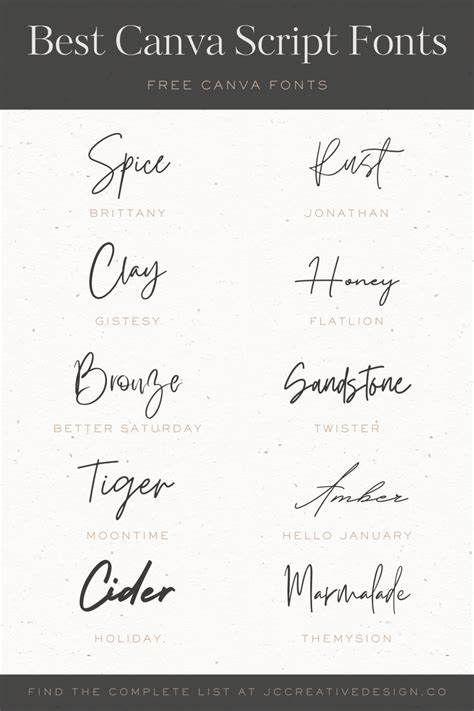 Best Canva Script Fonts
FREE CANVA FONTS
Spice Rust
BRITTANY JONATHAN
Clay Honey
GISTESY FLATLION
Bronze Sandstone
BETTER SATURDAY TWISTER
Tiger Amber
MOONTIME HELLO JANUARY
Cider Marmalade
HOLIDAY THEMYSION
FIND THE COMPLETE LIST AT JCCREATIVEDESIGN.CO